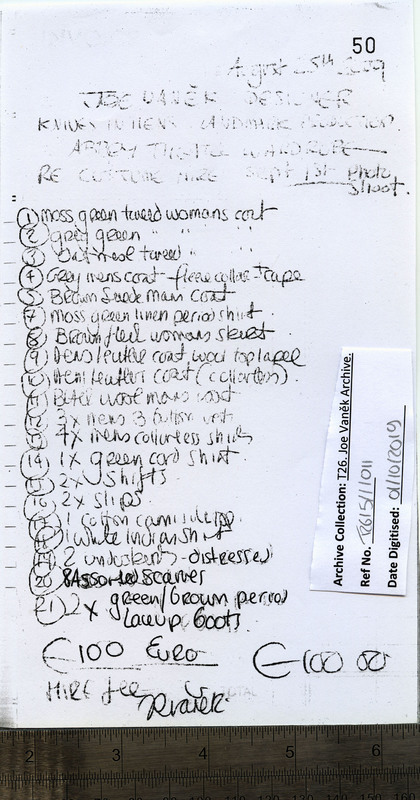 50
August 25th 2009
JOE VANĚK DESIGNER
KNIVES IN HENS. LANDMARK PRODUCTION.
ABBEY THEATRE WARDROBE
RE COSTUME HIRE Sept 1st Photo
Shoot.
① moss green tweed womans coat
② grey green " " "
③ Oatmeal tweed " " "
④ Grey mens coat - fleece collar + cape
⑤ Brown Suede mans coat
⑦ moss green linen period shirt.
⑧ Brown womans skirt
⑨ Mens leather coat wool top lapel
⑩ Mens leather coat (collarless).
⑪ wool mans coat
⑫ 3x mens 3 button vest
⑬ 4x mens collarless shirts
⑭ 1x green cord shirt.
⑮ 2x shifts
⑯ 2x slips
1 cotton camisole top
1 white indian shirt
2 underskirts - distressed
⑳ Assorted scarves
㉑ 2x green/brown period
laceup boots.
€100 Euro €100 00
HIRE fee
JVanek
Archive Collection: T26. Joe Vaněk Archive.
Ref No.
Date Digitised: 01/10/2019
2 3 4 5 6